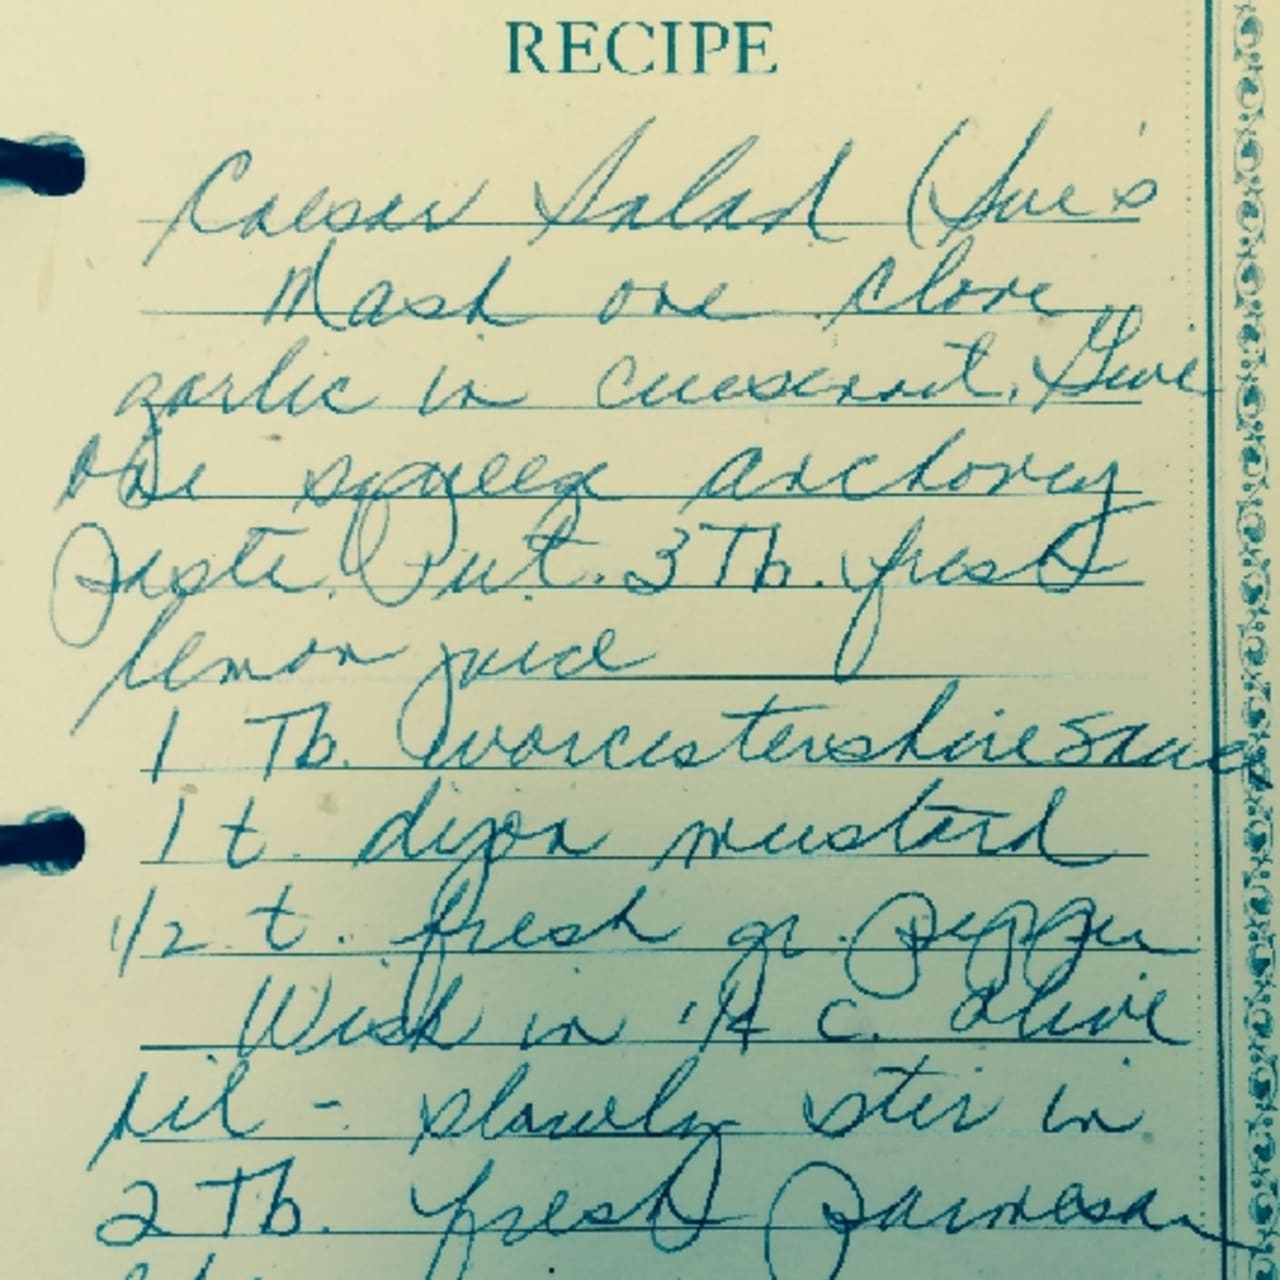 RECIPE
Caesar Salad (Sue's
Mash one clove
garlic in cuisenart. Give
one squeeze anchovey
paste. Put. 3 Tb. fresh
lemon juice
1 Tb. Worcestershire Sauce
1 t. dijon mustard
1/2 t. fresh gr. pepper
Wisk in 1/4 c. olive
oil - slowly stir in
2 Tb. fresh Parmesan